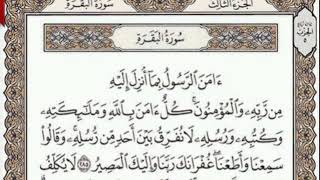 الجزء الثالث
سورة البقرة
سورة البقرة
ءَامَنَ ٱلرَّسُولُ بِمَآ أُنزِلَ إِلَيْهِ
مِن رَّبِّهِۦ وَٱلْمُؤْمِنُونَ ۚ كُلٌّ ءَامَنَ بِٱللَّهِ وَمَلَٰٓئِكَتِهِۦ
وَكُتُبِهِۦ وَرُسُلِهِۦ لَا نُفَرِّقُ بَيْنَ أَحَدٍ مِّن رُّسُلِهِۦ ۚ وَقَالُوا۟
سَمِعْنَا وَأَطَعْنَا ۖ غُفْرَانَكَ رَبَّنَا وَإِلَيْكَ ٱلْمَصِيرُ ٢٨٥ لَا يُكَلِّفُ